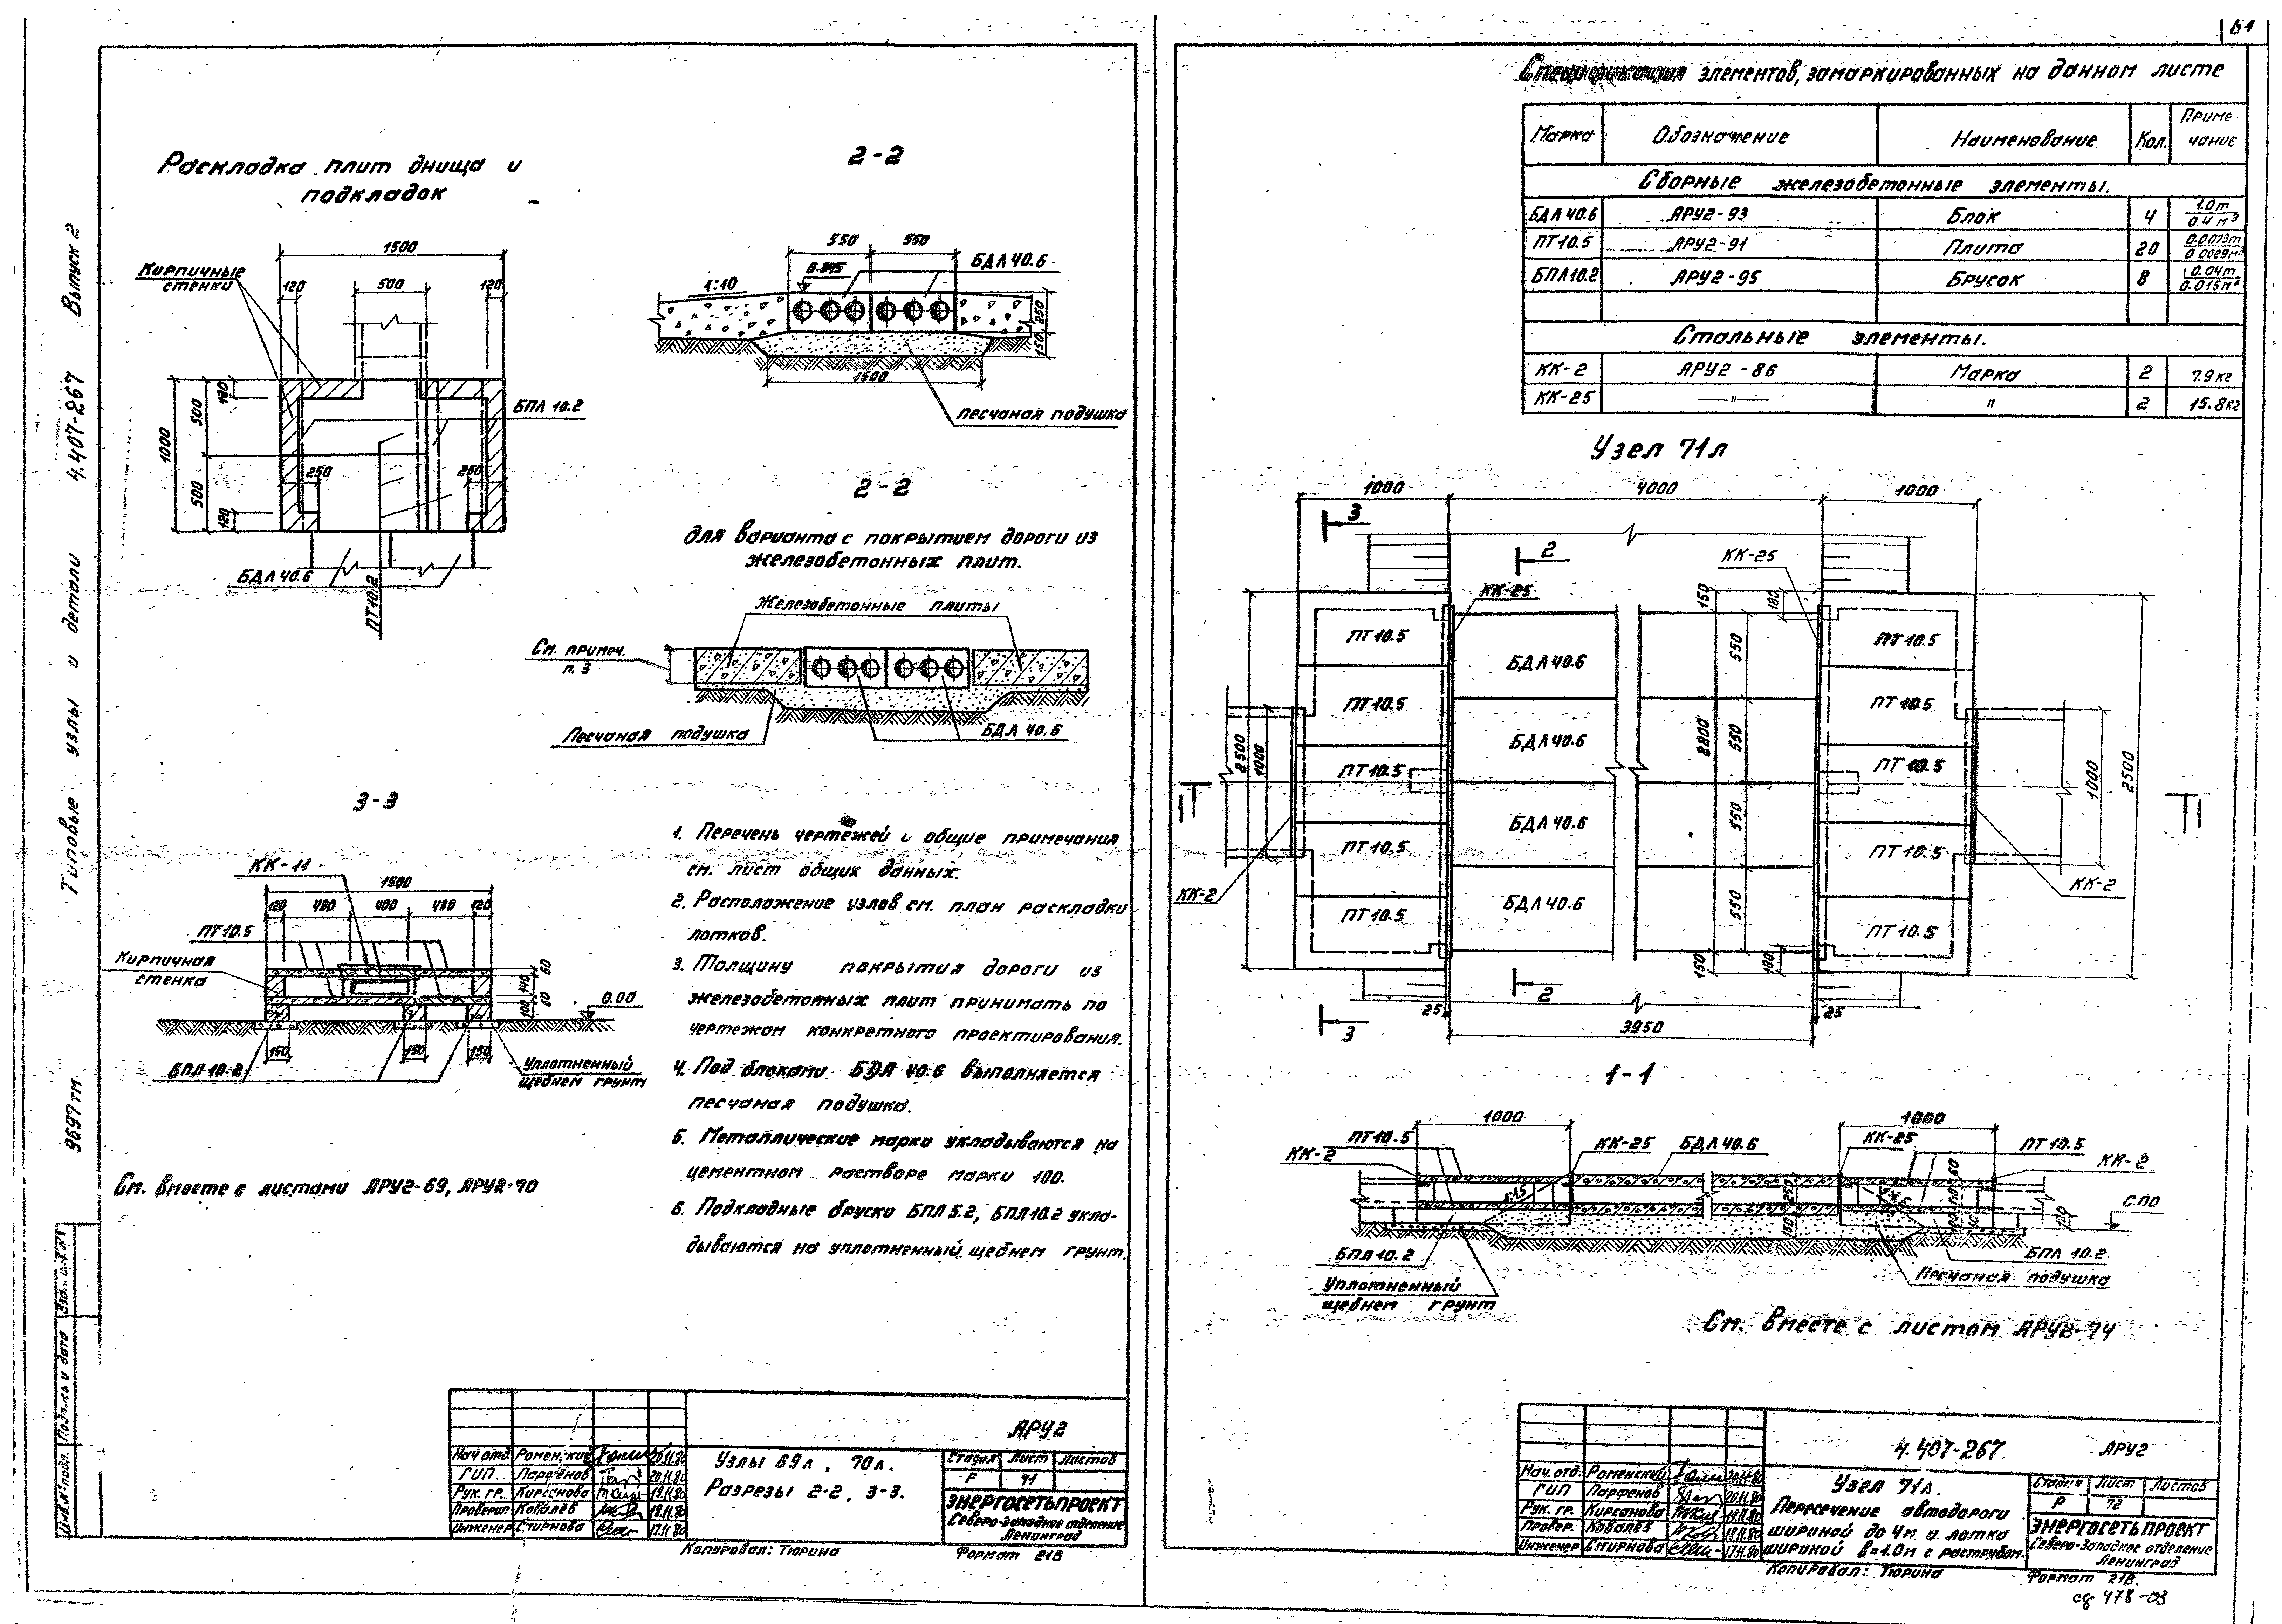 61
Типовые узлы и детали 4.407-267 Выпуск 2
9697тм
Раскладка плит днища и
подкладок
1500
Кирпичные
стенки
120
500
120
1000
500
500
120
120
БПЛ 10.2
250
250
БДЛ 40.6
ПТ10.2
2-2
550
550
0.345
БДЛ 40.6
1:10
250
150
1500
песчаная подушка
2-2
для варианта с покрытием дороги из
железобетонных плит.
Железобетонные плиты
См. примеч.
п. 3
Песчаная подушка
БДЛ 40.6
3-3
КК-11
1500
120
430
400
430
120
ПТ10.5
Кирпичная
стенка
60
140
60
100
0.00
150
150
150
БПЛ 10.2
Уплотненный
щебнем грунт
1. Перечень чертежей и общие примечания
см. лист общих данных.
2. Расположение узлов см. план раскладки
лотков.
3. Толщину покрытия дороги из
железобетонных плит принимать по
чертежам конкретного проектирования.
4. Под блоками БДЛ 40.6 выполняется
песчаная подушка.
5. Металлические марки укладываются на
цементном растворе марки 100.
6. Подкладные бруски БПЛ 5.2, БПЛ10.2 укла-
дываются на уплотненный щебнем грунт.
См. вместе с листами АРУ2-69, АРУ2-70
Инв.№ подл. Подпись и дата Взам. инв.№
АРУ2
Нач отд. Роменский 20.11.80
ГИП Парфенов 20.11.80
Рук. гр. Кирсанова 19.11.80
Проверил Ковалев 18.11.80
Инженер Смирнова 17.11.80
Узлы 69л, 70л.
Разрезы 2-2, 3-3.
Стадия Лист Листов
Р 71
ЭНЕРГОСЕТЬПРОЕКТ
Северо-Западное отделение
Ленинград
Копировал: Тюрина
Формат 21В
Спецификация элементов, замаркированных на данном листе
Марка Обозначение Наименование Кол. Приме-
чание
Сборные железобетонные элементы.
БДЛ 40.6 АРУ2-93 Блок 4 1.0т
0.4 м³
ПТ10.5 АРУ2-91 Плита 20 0.0073т
0.0029м³
БПЛ10.2 АРУ2-95 Брусок 8 0.04т
0.015м³
Стальные элементы.
КК-2 АРУ2-86 Марка 2 7.9кг
КК-25 —"— " 2 15.8кг
Узел 71л
1000
4000
1000
3
2
КК-25
КК-25
150
180
550
550
550
550
2200
150
180
2500
1000
1000
2500
ПТ10.5
ПТ10.5
ПТ10.5
ПТ10.5
ПТ10.5
БДЛ40.6
БДЛ40.6
БДЛ40.6
БДЛ40.6
ПТ10.5
ПТ10.5
ПТ10.5
ПТ10.5
ПТ10.5
1
1
КК-2
КК-2
2
3
25
25
3950
1-1
1000
1000
ПТ10.5
КК-2
КК-25
БДЛ 40.6
КК-25
ПТ10.5
КК-2
1:1.5
250
БПЛ10.2
Уплотненный
щебнем грунт
БПЛ 10.2
Песчаная подушка
См. вместе с листом АРУ2-74
4.407-267 АРУ2
Нач. отд. Роменский 20.11.80
ГИП Парфенов 20.11.80
Рук. гр. Кирсанова 19.11.80
Провер. Ковалев 18.11.80
Инженер Смирнова 17.11.80
Узел 71л.
Пересечение автодороги
шириной до 4м и лотка
шириной в=1.0м с раструбом.
Стадия Лист Листов
Р 72
ЭНЕРГОСЕТЬПРОЕКТ
Северо-Западное отделение
Ленинград
Копировал: Тюрина
Формат 21В.
сф 478-03